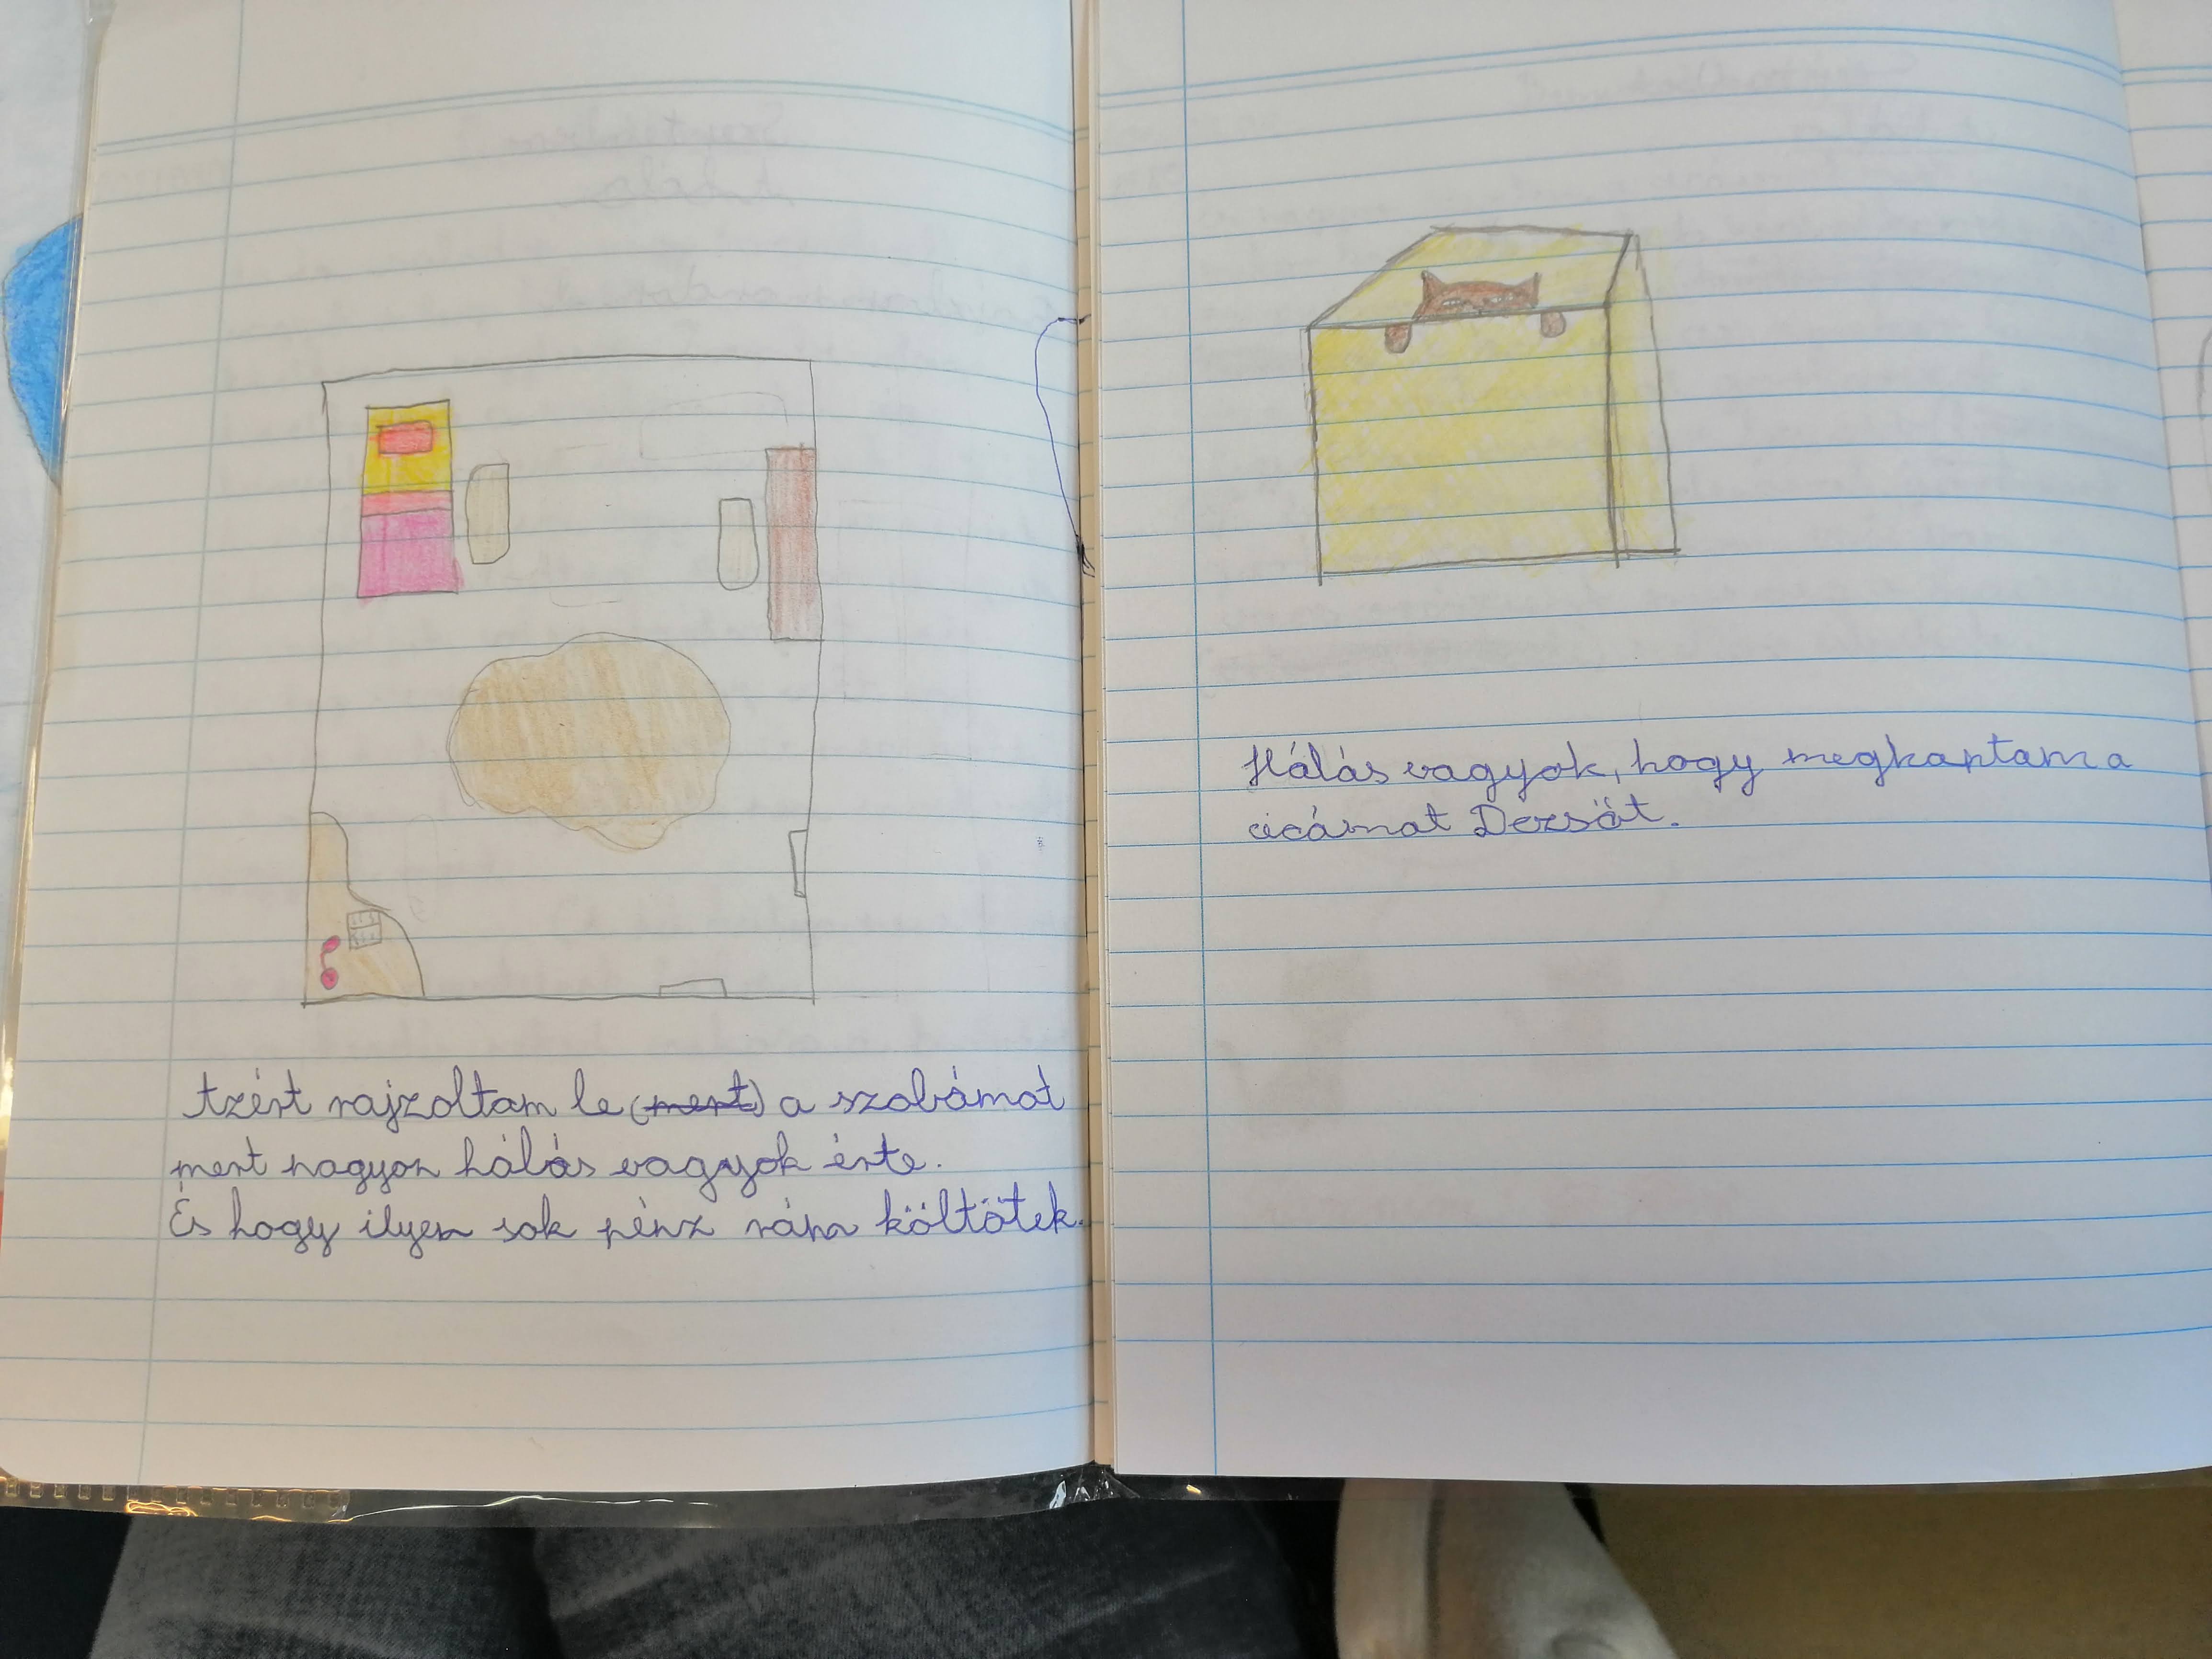 Azért rajzoltam le (mert) a szobámat
mert nagyon hálás vagyok érte.
És hogy ilyen sok pénz rám költötek.
Hálás vagyok, hogy megkaptam a
cicámat Dezsőt.